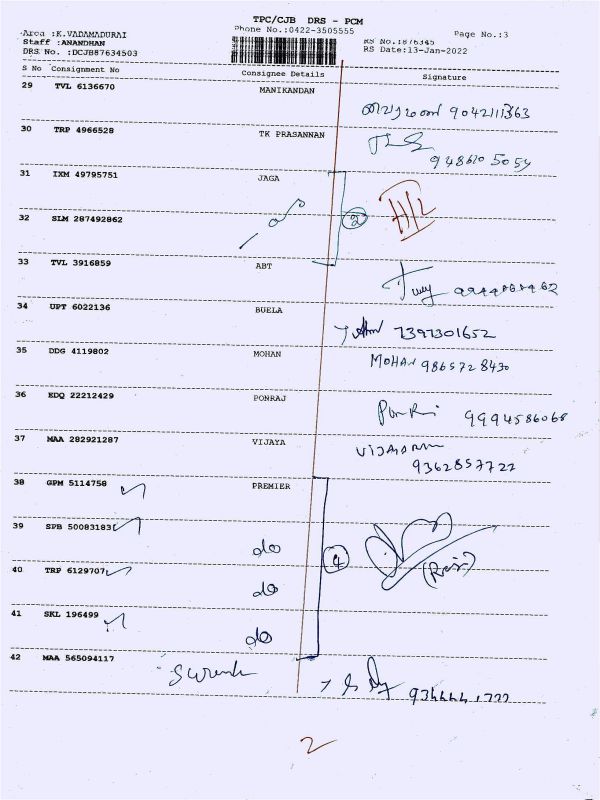 TPC/CJB DRS - PCM
Area :K.VADAMADURAI
Phone No.:0422-3505555
Page No.:3
Staff :ANANDHAN
RS No.:876345
DRS No. :DCJB87634503
RS Date:13-Jan-2022
S No Consignment No Consignee Details Signature
29 TVL 6136670 MANIKANDAN
9042111363
30 TRP 4966528 TK PRASANNAN
948610 5054
31 IXM 49795751 JAGA
32 SLM 287492862 2
33 TVL 3916859 ABT
34 UPT 6022136 BUELA
7397301652
35 DDG 4119802 MOHAN
MOHAN 9865728430
36 EDQ 22212429 PONRAJ
9994586068
37 MAA 282921287 VIJAYA
9362857722
38 GPM 5114758 PREMIER
39 SPB 50083183 do 4
40 TRP 6129707 do
41 SKL 196499 do
42 MAA 565094117 Suresh
2